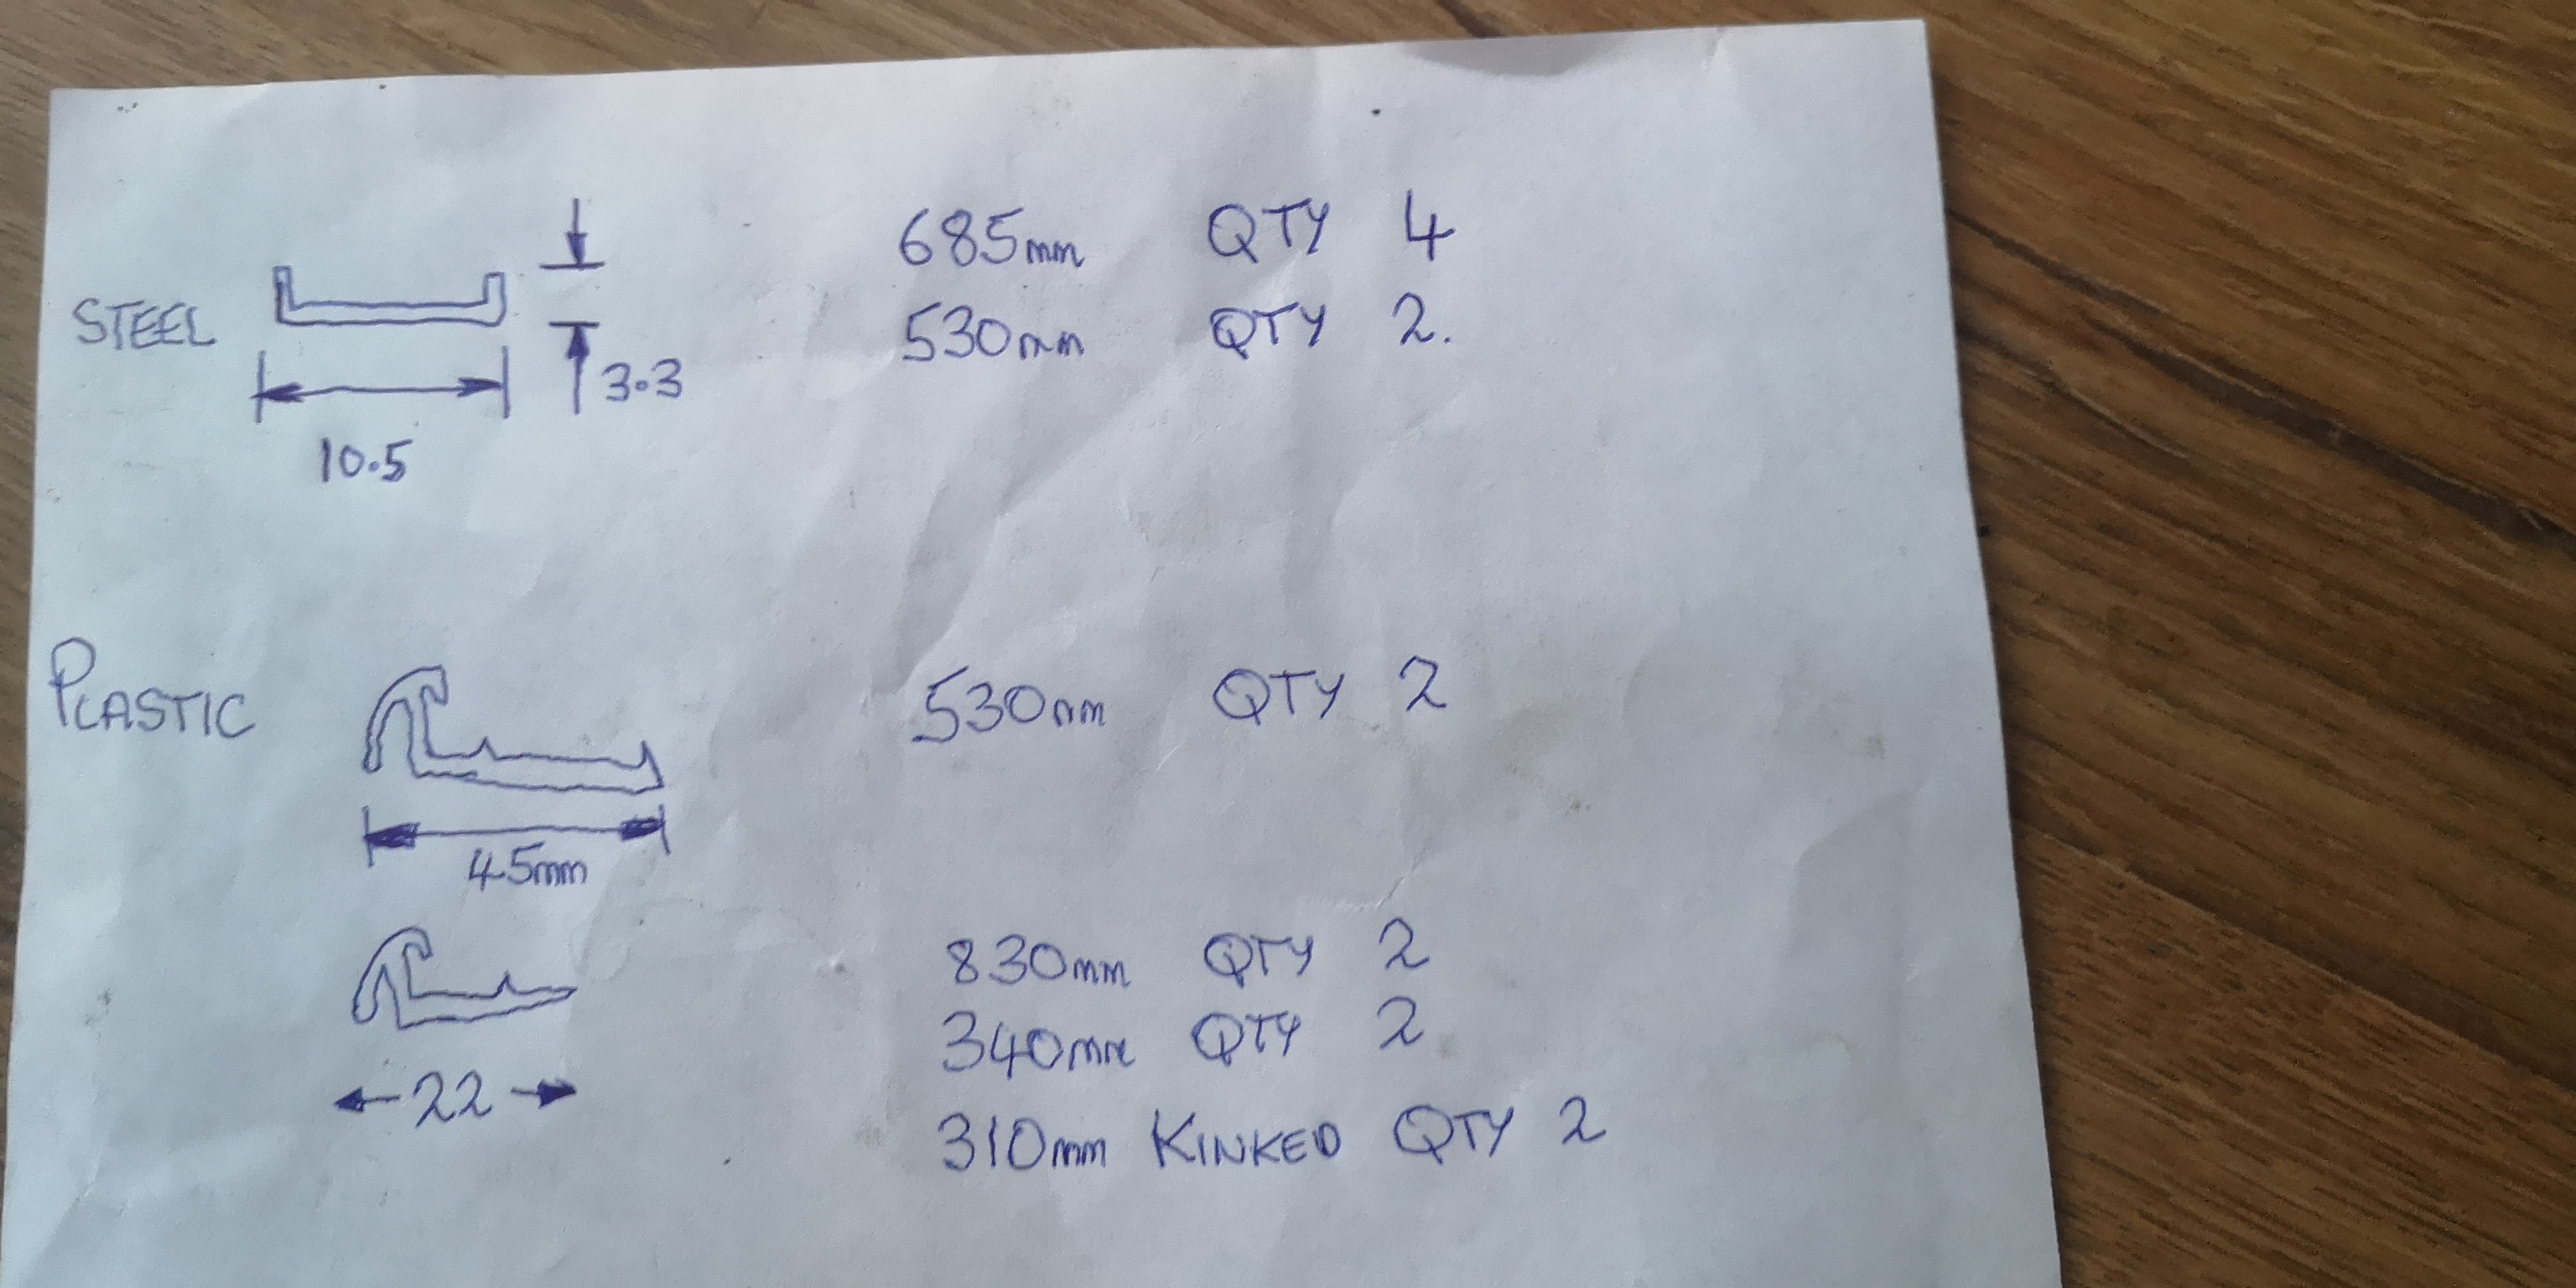 685mm QTY 4
STEEL
530mm QTY 2.
3.3
10.5
PLASTIC
530mm QTY 2
45mm
830mm QTY 2
340mm QTY 2
22
310mm KINKED QTY 2